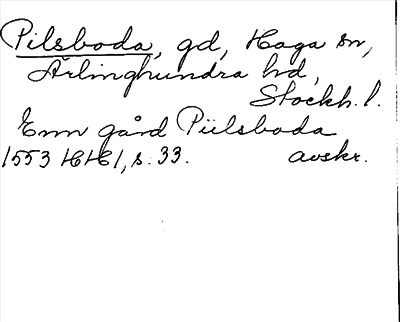 Pilsboda, gd, Haga sn,
Ärlinghundra hd,
Stockh. l.
Enn gård Piilsboda
1553 HH 1, s. 33. avskr.